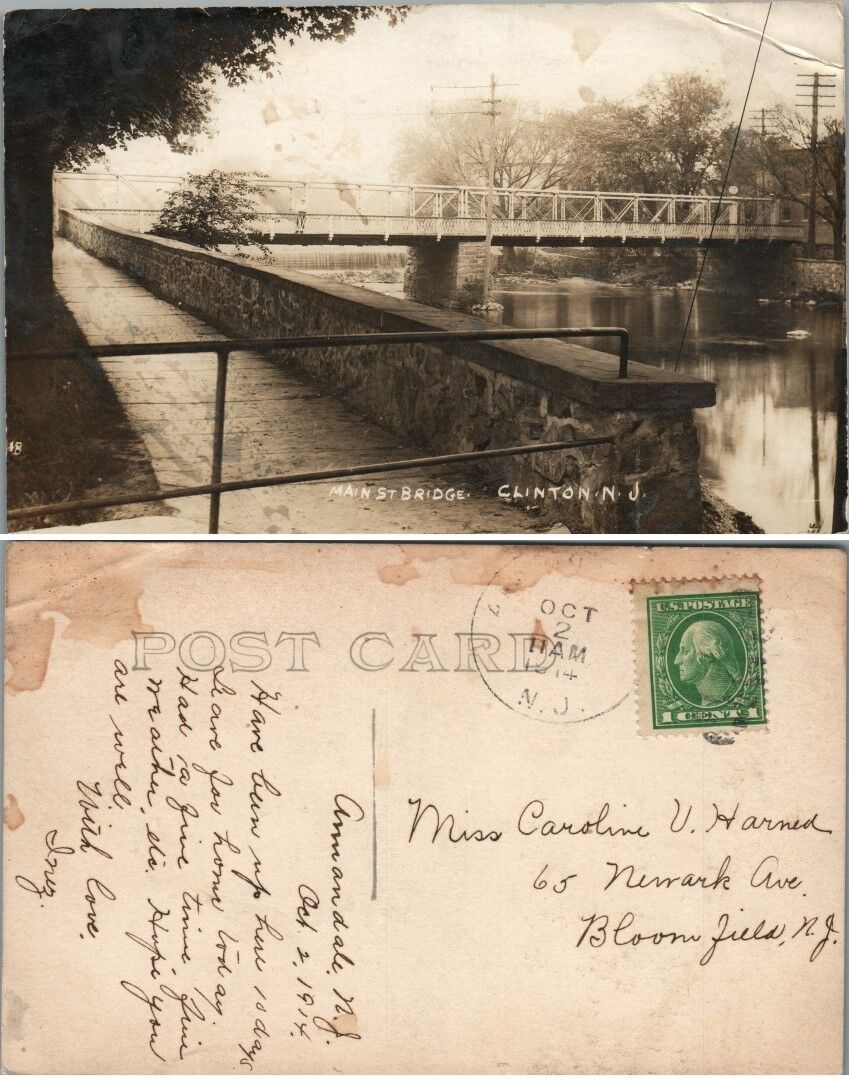 18
MAIN ST BRIDGE. CLINTON. N. J.
POST CARD
OCT
2
11 AM
1914
N. J.
U.S. POSTAGE
1 CENT 1
Annandale, N.J.
Oct. 2, 1914.
Have been up here 10 days
Leave for home today.
Had a fine time fine
weather, etc. Hope you
are well.
With love.
Inez.
Miss Caroline V. Harned
65 Newark Ave.
Bloomfield, N.J.